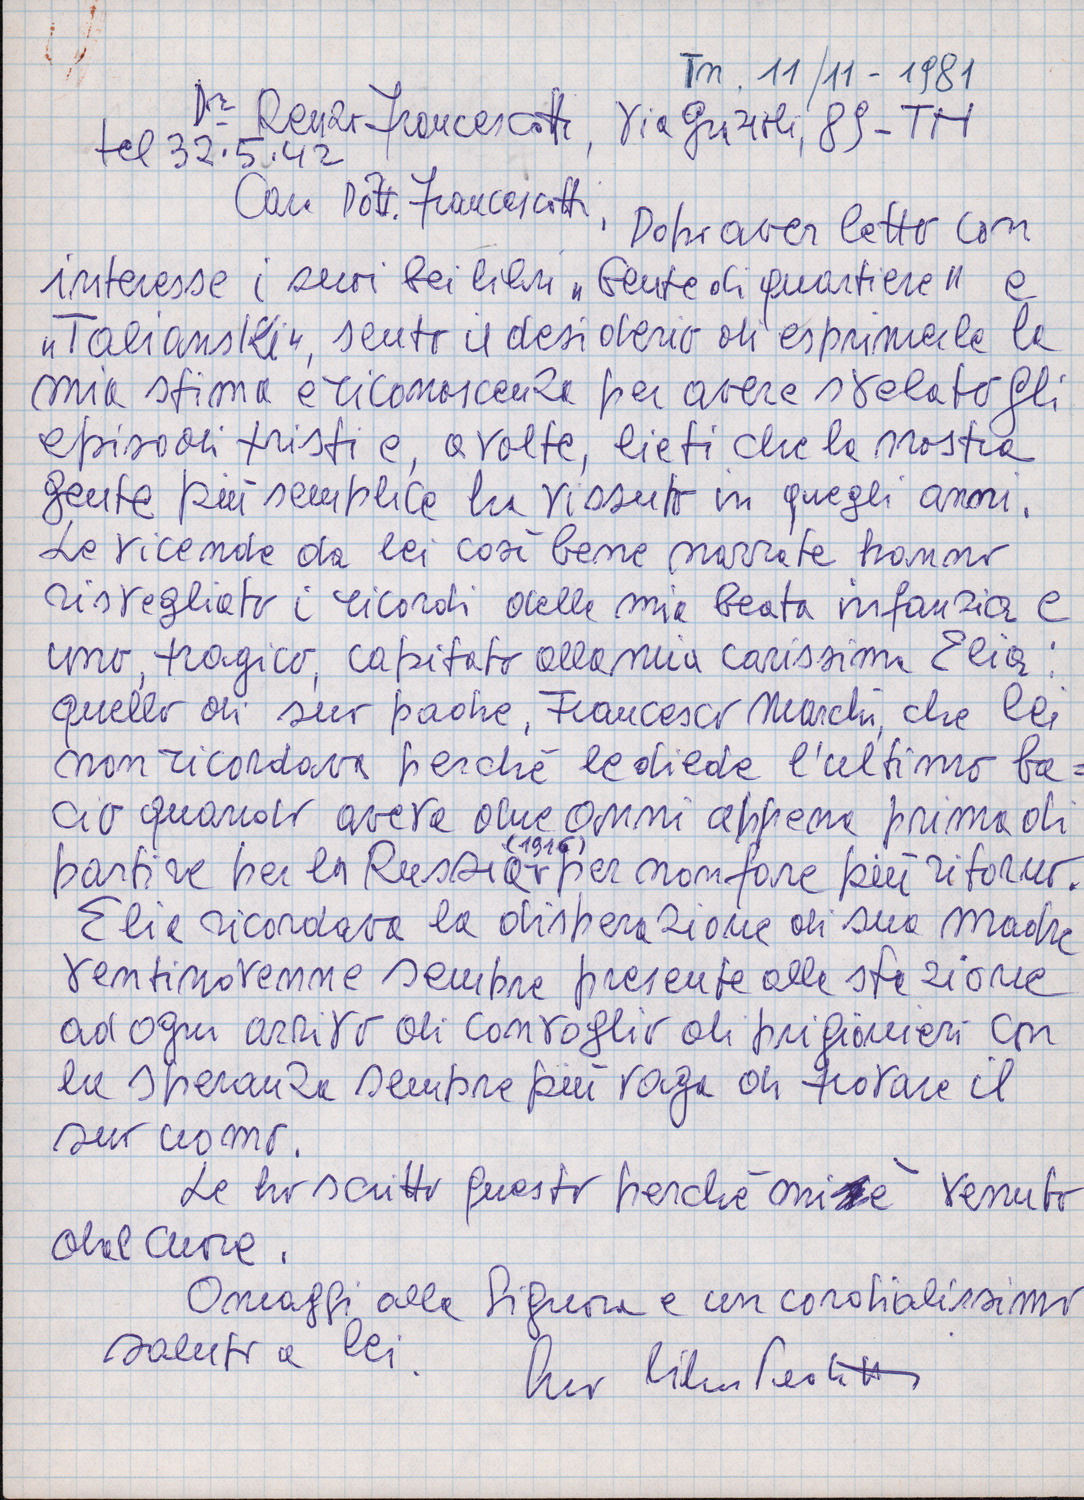 Tn. 11/11-1981
Dr Renzo Francescotti, Via Grazioli, 89-TN
tel 32.5.42
Caro Dott. Francescotti,
Dopo aver letto con
interesse i suoi bei libri "Gente di quartiere" e
"Talianski", sento il desiderio di esprimerle la
mia stima e riconoscenza per avere svelato gli
episodi tristi e, a volte, lieti che la nostra
gente più semplice ha vissuto in quegli anni.
Le vicende da lei così bene narrate hanno
risvegliato i ricordi della mia beata infanzia e
uno, tragico, capitato alla mia carissima Elia:
quello di suo padre, Francesco Marchi, che lei
non ricordava perchè le diede l'ultimo ba=
cio quando aveva due anni appena prima di
(1916)
partire per la Russia per non fare più ritorno.
Elia ricordava la disperazione di sua madre
ventinovenne sempre presente alla stazione
ad ogni arrivo di convoglio di prigionieri con
la speranza sempre più vaga di trovare il
suo uomo.
Le ho scritto questo perchè mi è venuto
dal cuore.
Omaggi alla Signora e un cordialissimo
saluto a lei.
Suo